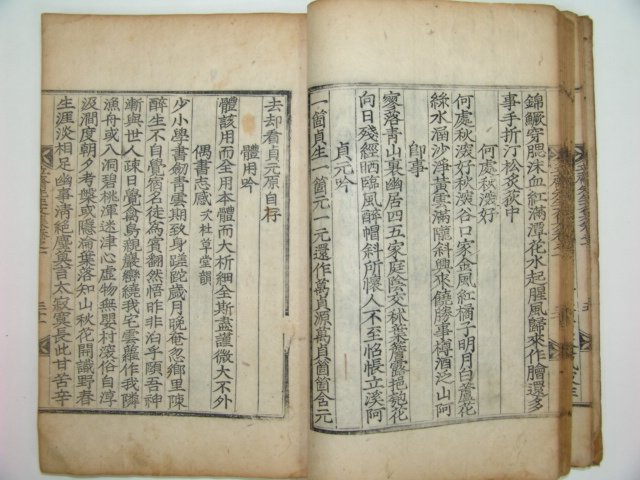 錦鱖穿腮沫血紅滿潭花水起腥風歸來作膾還多
事手折汀松炙荻中
何處秋㴱好
何處秋㴱好秋㴱谷口家金風紅橘子明月白蘆花
綠水涵沙淨黃雲滿隴斜興來饒勝事樽酒泛山阿
卽事
寥落青山裏幽居四五家庭陰交秋葉籬露挹
花
向日殘經晒臨風醉帽斜所懷人不至怊悵立溪阿
貞元吟
一箇貞生一箇元一元還作萬貞源萬貞箇箇含元
去却看貞元原自存
體用吟
體該用而全用本體而大析細全斯盡謹微大不外
偶書志感 次杜草堂韻
少小學書劒青雲期致身蹉跎歲月晚奄忽鄉里陳
醉生不自覺病名徒為賓翻然悟昨非泊乎頤吾神
漸與世人疎日覺禽鳥親巖巒繞我宅雲蘿作我隣
漁舟或入洞碧桃渾迷津心虛物無嬰村深俗自淳
汲澗度朝夕考槃或隱淪葉落知山秋花開識野春
生涯淡相足幽事清絶塵莫言太寂寞長此甘苦辛